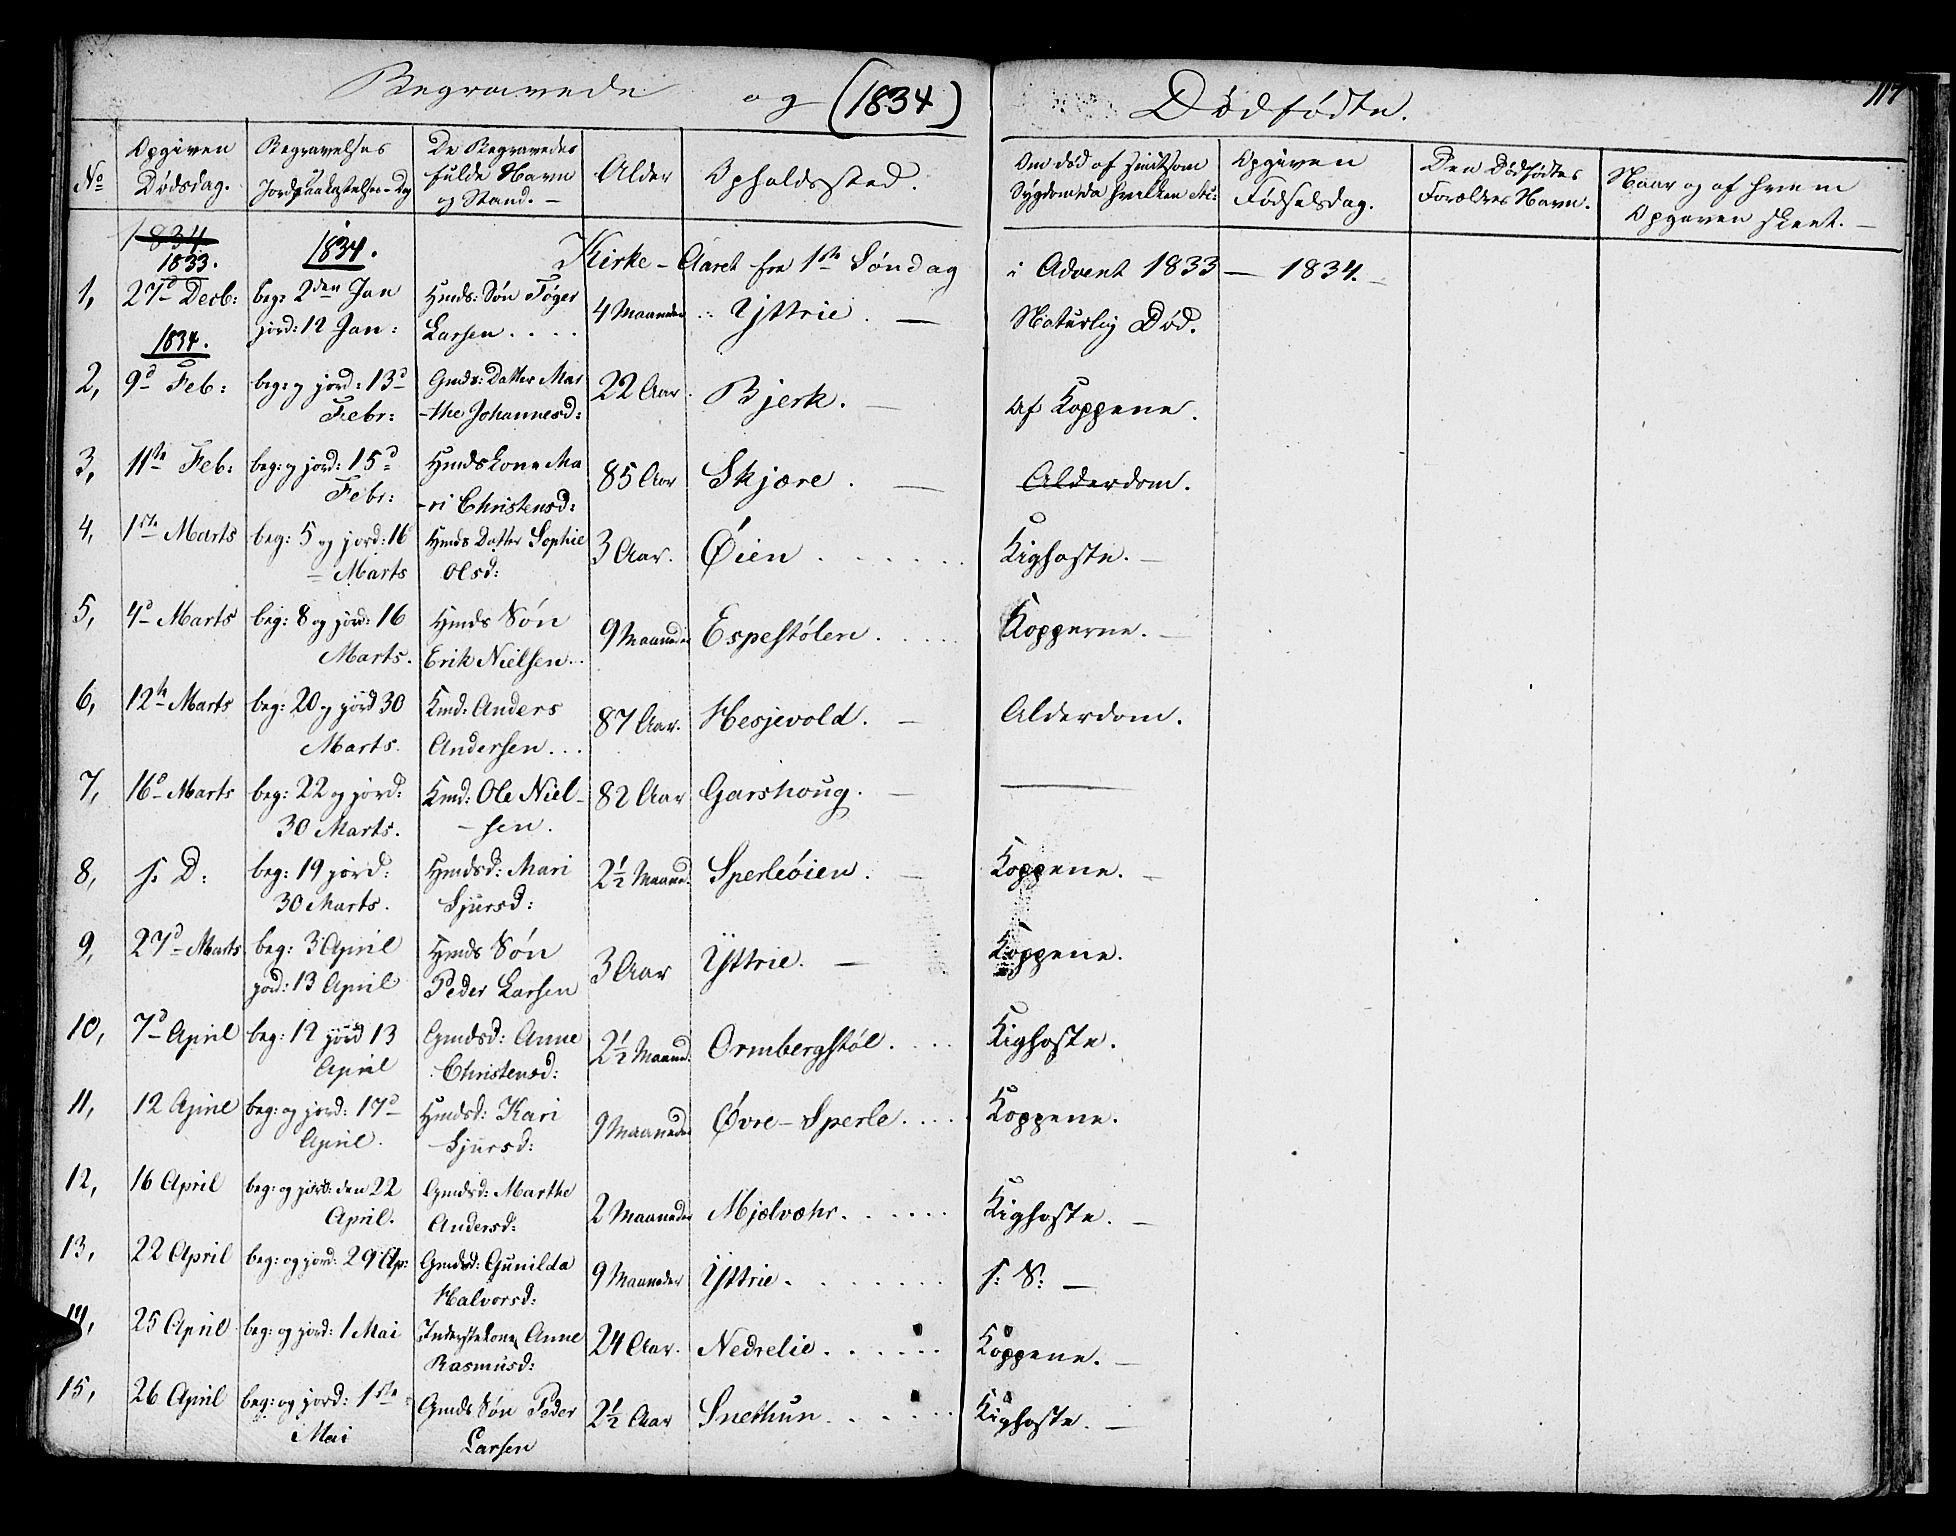 Begravede og (1834) Dødfødte. 117
No | Opgiven Dødsdag. | Begravelses Jordpaakastelses-Dag | De Begravedes fulde Navn og Stand. – | Alder | Opholdssted. | Om død af smitsom Sygdom da hvilken | Opgiven Fødselsdag. | Den Dødfødtes Forældres Navn. | Naar og af hvem Opgaven skeet. –
1834
1833. 1834. Kirke-Aaret fra 1ste Søndag i Advent 1833 – 1834. –
1, 27d Decb: beg: 2den Jan Hmds: Søn Tøger 4 Maaneder Ÿttrie. – Naturlig Død.
jord: 12 Jan: Larsen . . . .
1834.
2, 9d Feb: beg: og jord: 13d Gmds: Datter Mar 22 Aar. Bjerk. – Af Koppene.
Febr: -the Johannesd:
3, 11te Feb: beg: og jord: 15d Hmds Kone Ma 85 Aar Skjøre. – Alderdom.
Febr: -ri Christensd:
4, 1ste Marts beg: 5 og jord: 16 Hmds Datter Sophie 3 Aar. Øien . . . . . . Kighoste. –
– Marts Olsd:
5, 4d Marts beg: 8 og jord: 16 Hmds Søn 9 Maaneder Espestølen . . . . Kopperne. –
Marts. Erik Nielsen . .
6, 12te Marts beg: 20 og jord 30 Kmd: Anders 87 Aar. Hesjevold. – Alderdom.
Marts. Andersen . . .
7, 16d Marts beg: 22 og jord: Kmd: Ole Niel- 82 Aar Garshoug. – ———
30 Marts. -sen.
8, s. D: beg: 19 jord: Hmdsd: Mari 2½ Maaned. Sperleøien. – Koppene. –
30 Marts. Sjursd:
9, 27d Marts beg: 3 April Hmds Søn 3 Aar Ÿttrie. – Koppene.
jord: 13 April Peder Larsen
10, 7d April beg: 12 jord 13 Gmdsd: Anne 2½ Maaned. Ormbergstøl. . . . Kighoste.
April Christensd:
11, 12 April beg: og jord: 17d Hmdsd: Kari 9 Maaneder Øvre-Sperle. . . . Koppene.
April. Sjursd:
12, 16 April beg: og jord: den 22 Gmdsd: Marthe 2 Maaneder Mjelvæhr. . . . . . Kighoste. –
April. Andersd:
13, 22 April beg: og jord: 29 Ap: Gmdsd: Gunilda 9 Maaneder Ÿttrie. . . . . . . s: S: –
Halvorsd:
14, 25 April beg: og jord: 1 Mai Inderstekone Anne 24 Aar. Nedrelie. . . . . . Koppene. –
Rasmusd:
15, 26 April beg: og jord: 1ste Gmds Søn Peder 2½ Aar Snethun. . . . . . Kighoste. –
Mai Larsen